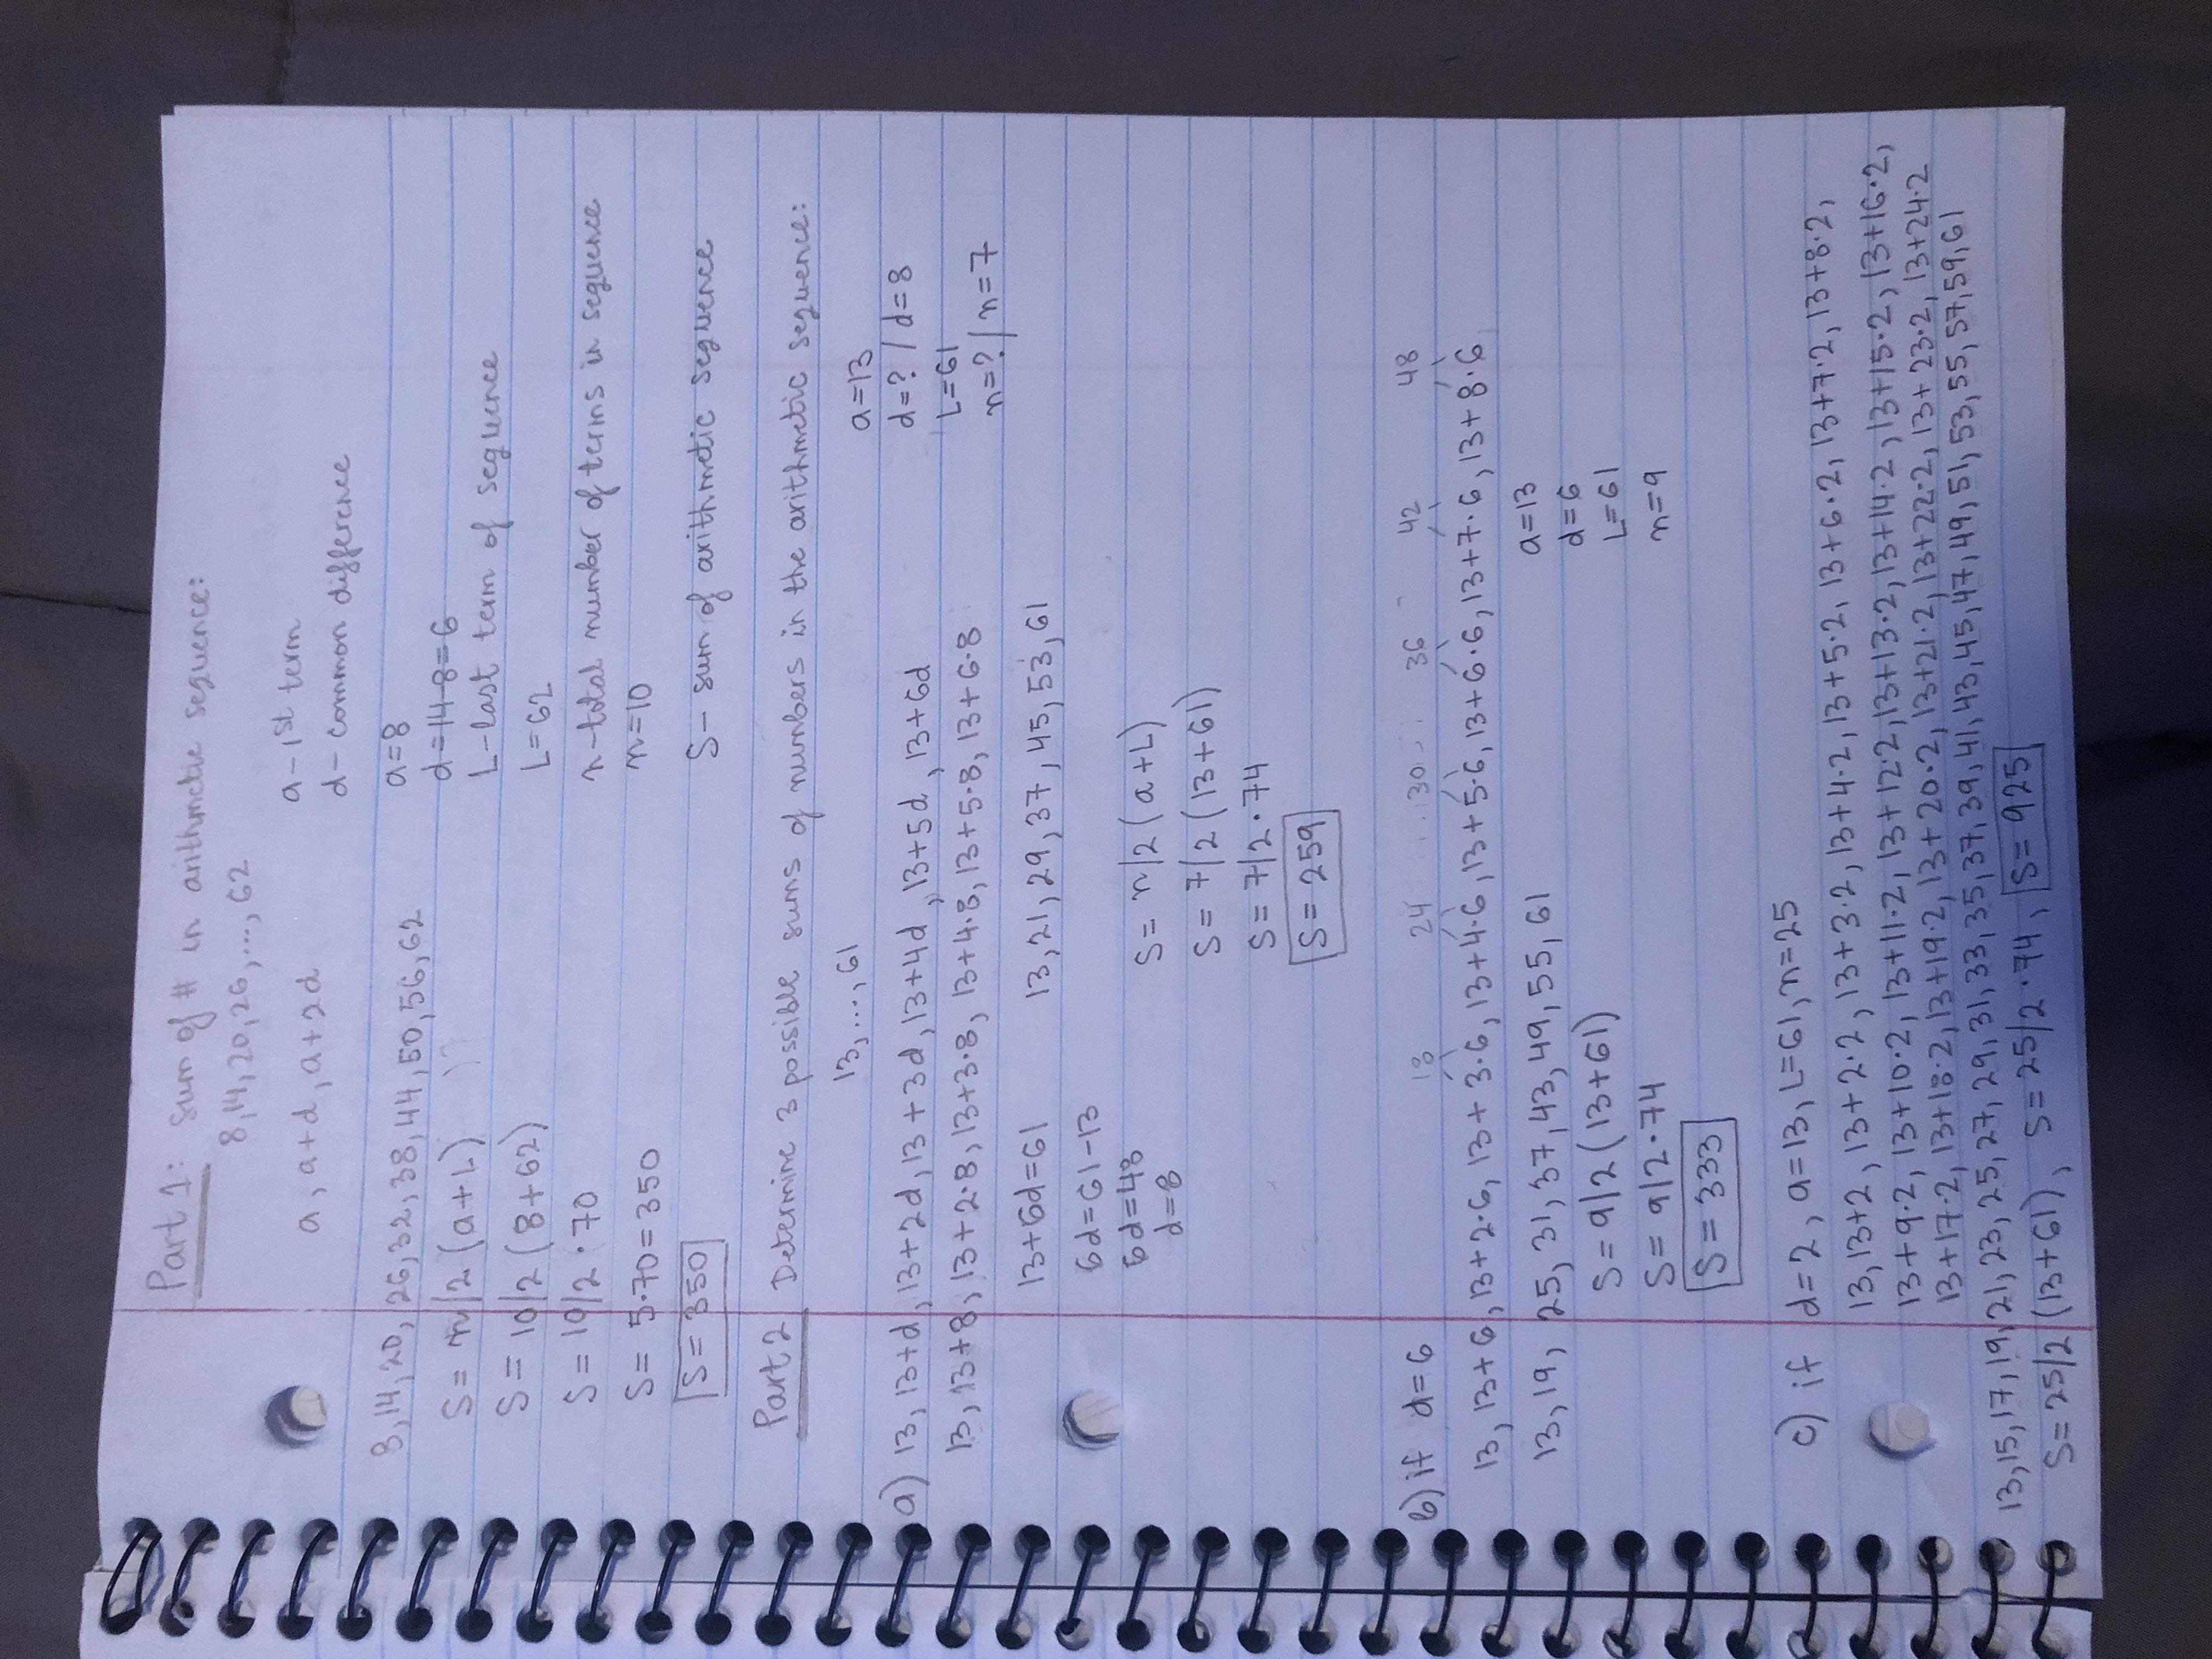 Part 1: Sum of # in arithmetic sequence:
8,14,20,26,...,62
a, a+d, a+2d
a - 1st term
d - common difference
8,14,20,26,32,38,44,50,56,62
a=8
S = n/2 (a+L)
d=14-8=6
S = 10/2 (8+62)
L - last term of sequence
S = 10/2 · 70
L=62
S = 5·70=350
n - total number of terms in sequence
S=350
n=10
S - sum of arithmetic sequence
Part 2 Determine 3 possible sums of numbers in the arithmetic sequence:
13,...,61
a=13
a) 13, 13+d, 13+2d, 13+3d, 13+4d, 13+5d, 13+6d
d=? / d=8
13, 13+8, 13+2·8, 13+3·8, 13+4·8, 13+5·8, 13+6·8
L=61
n=? / n=7
13+6d=61
13, 21, 29, 37, 45, 53, 61
6d=61-13
6d=48
d=8
S = n/2 (a+L)
S = 7/2 (13+61)
S = 7/2 · 74
S = 259
b) if d=6
18 24 30 36 42 48
13, 13+6, 13+2·6, 13+3·6, 13+4·6, 13+5·6, 13+6·6, 13+7·6, 13+8·6
13, 19, 25, 31, 37, 43, 49, 55, 61
a=13
S = 9/2 (13+61)
d=6
L=61
S = 9/2·74
n=9
S = 333
c) if d=2, a=13, L=61, n=25
13, 13+2, 13+2·2, 13+3·2, 13+4·2, 13+5·2, 13+6·2, 13+7·2, 13+8·2,
13+9·2, 13+10·2, 13+11·2, 13+12·2, 13+13·2, 13+14·2, 13+15·2, 13+16·2,
13+17·2, 13+18·2, 13+19·2, 13+20·2, 13+21·2, 13+22·2, 13+23·2, 13+24·2
13,15,17,19,21,23,25,27,29,31,33,35,37,39,41,43,45,47,49,51,53,55,57,59,61
S=25/2 (13+61), S=25/2·74, S=925